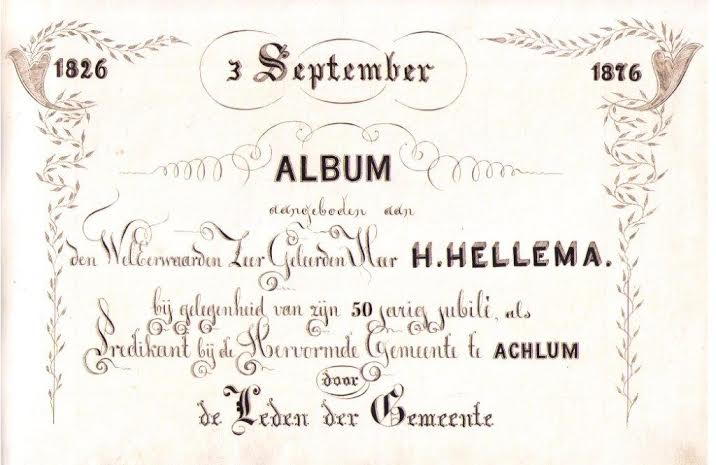 1826 3 September 1876
ALBUM
aangeboden aan
den WelEerwaarden Zeer Geleerden Heer H. HELLEMA.
bij gelegenheid van zijn 50 jarig jubilé, als
Predikant bij de Hervormde Gemeente te ACHLUM
door
de Leden der Gemeente